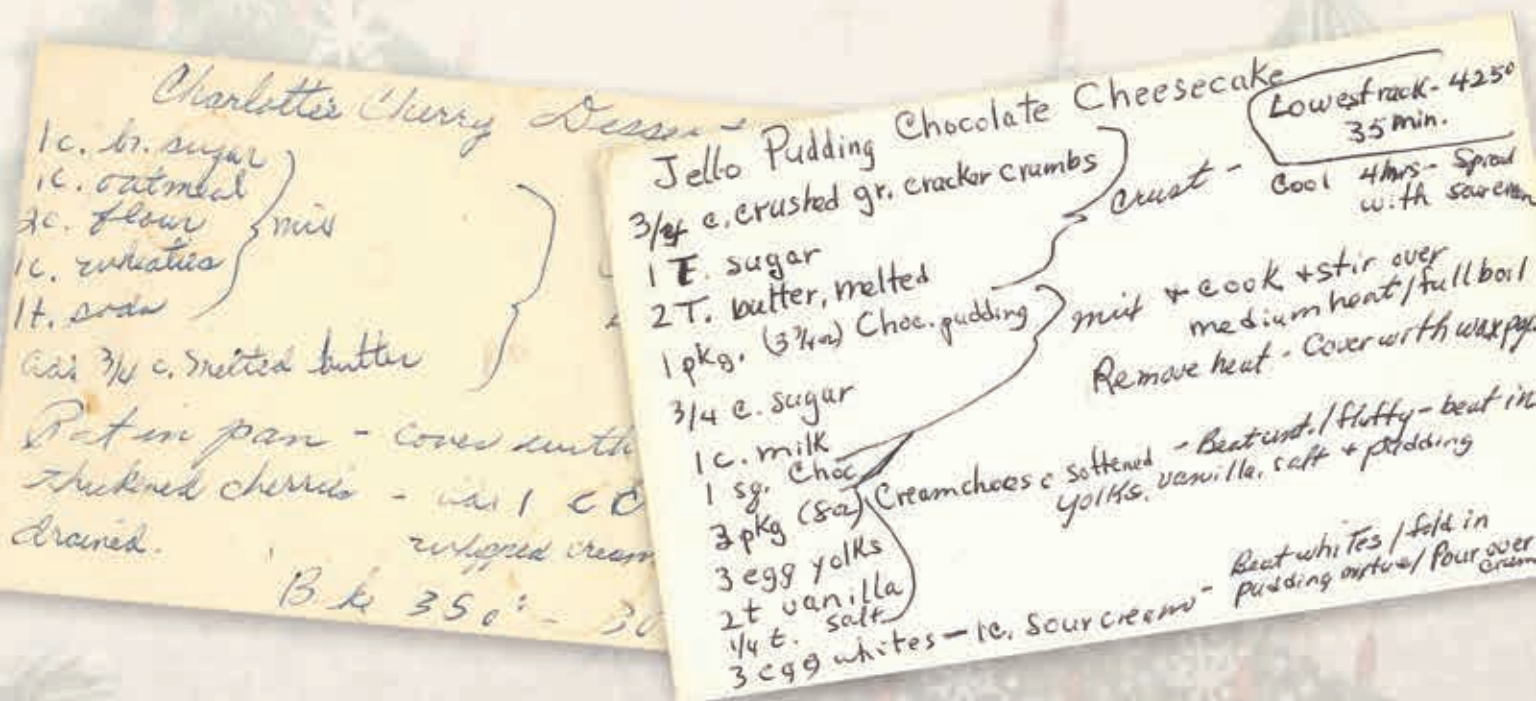 Charlotte's Cherry Dessert
1c. br. sugar
1c. oatmeal
2c. flour
1c. wheaties
1t. soda
mix
add 3/4 c. melted butter
Pat in pan - cover with
thickened cherries - 1 c
drained.
whipped cream
Bake 350° - 30
Jello Pudding Chocolate Cheesecake
3/4 c. crushed gr. cracker crumbs
1 T. sugar
2 T. butter, melted
crust -
Lowest rack - 425°
35 min.
Cool 4 hrs - Spread
with sour cream
1 pkg. (3 1/4 oz) Choc. pudding
3/4 c. sugar
1 c. milk
1 sq. Choc
mix + cook + stir over
medium heat / full boil
Remove heat - Cover with wax pap
3 pkg (8oz) Cream chees e softened - Beat unt. / fluffy - beat in
yolks, vanilla, salt + pudding
3 egg yolks
2t vanilla
1/4 t. salt
3 egg whites - 1c. sour cream - Beat whites / fold in
pudding / Pour over
crum